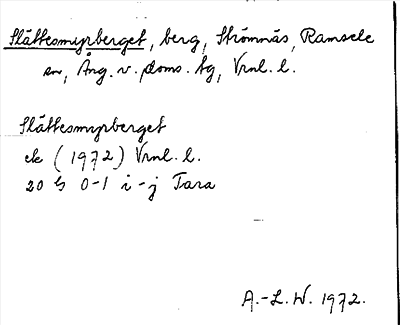 Slättesmyrberget, berg, Strömnäs, Ramsele
sn, Ång. v. doms. tg, Vrnl. l.
Slättesmyrberget
ek (1972) Vrnl. l.
20 G 0-1 i-j Tara
A.-L. W. 1972.